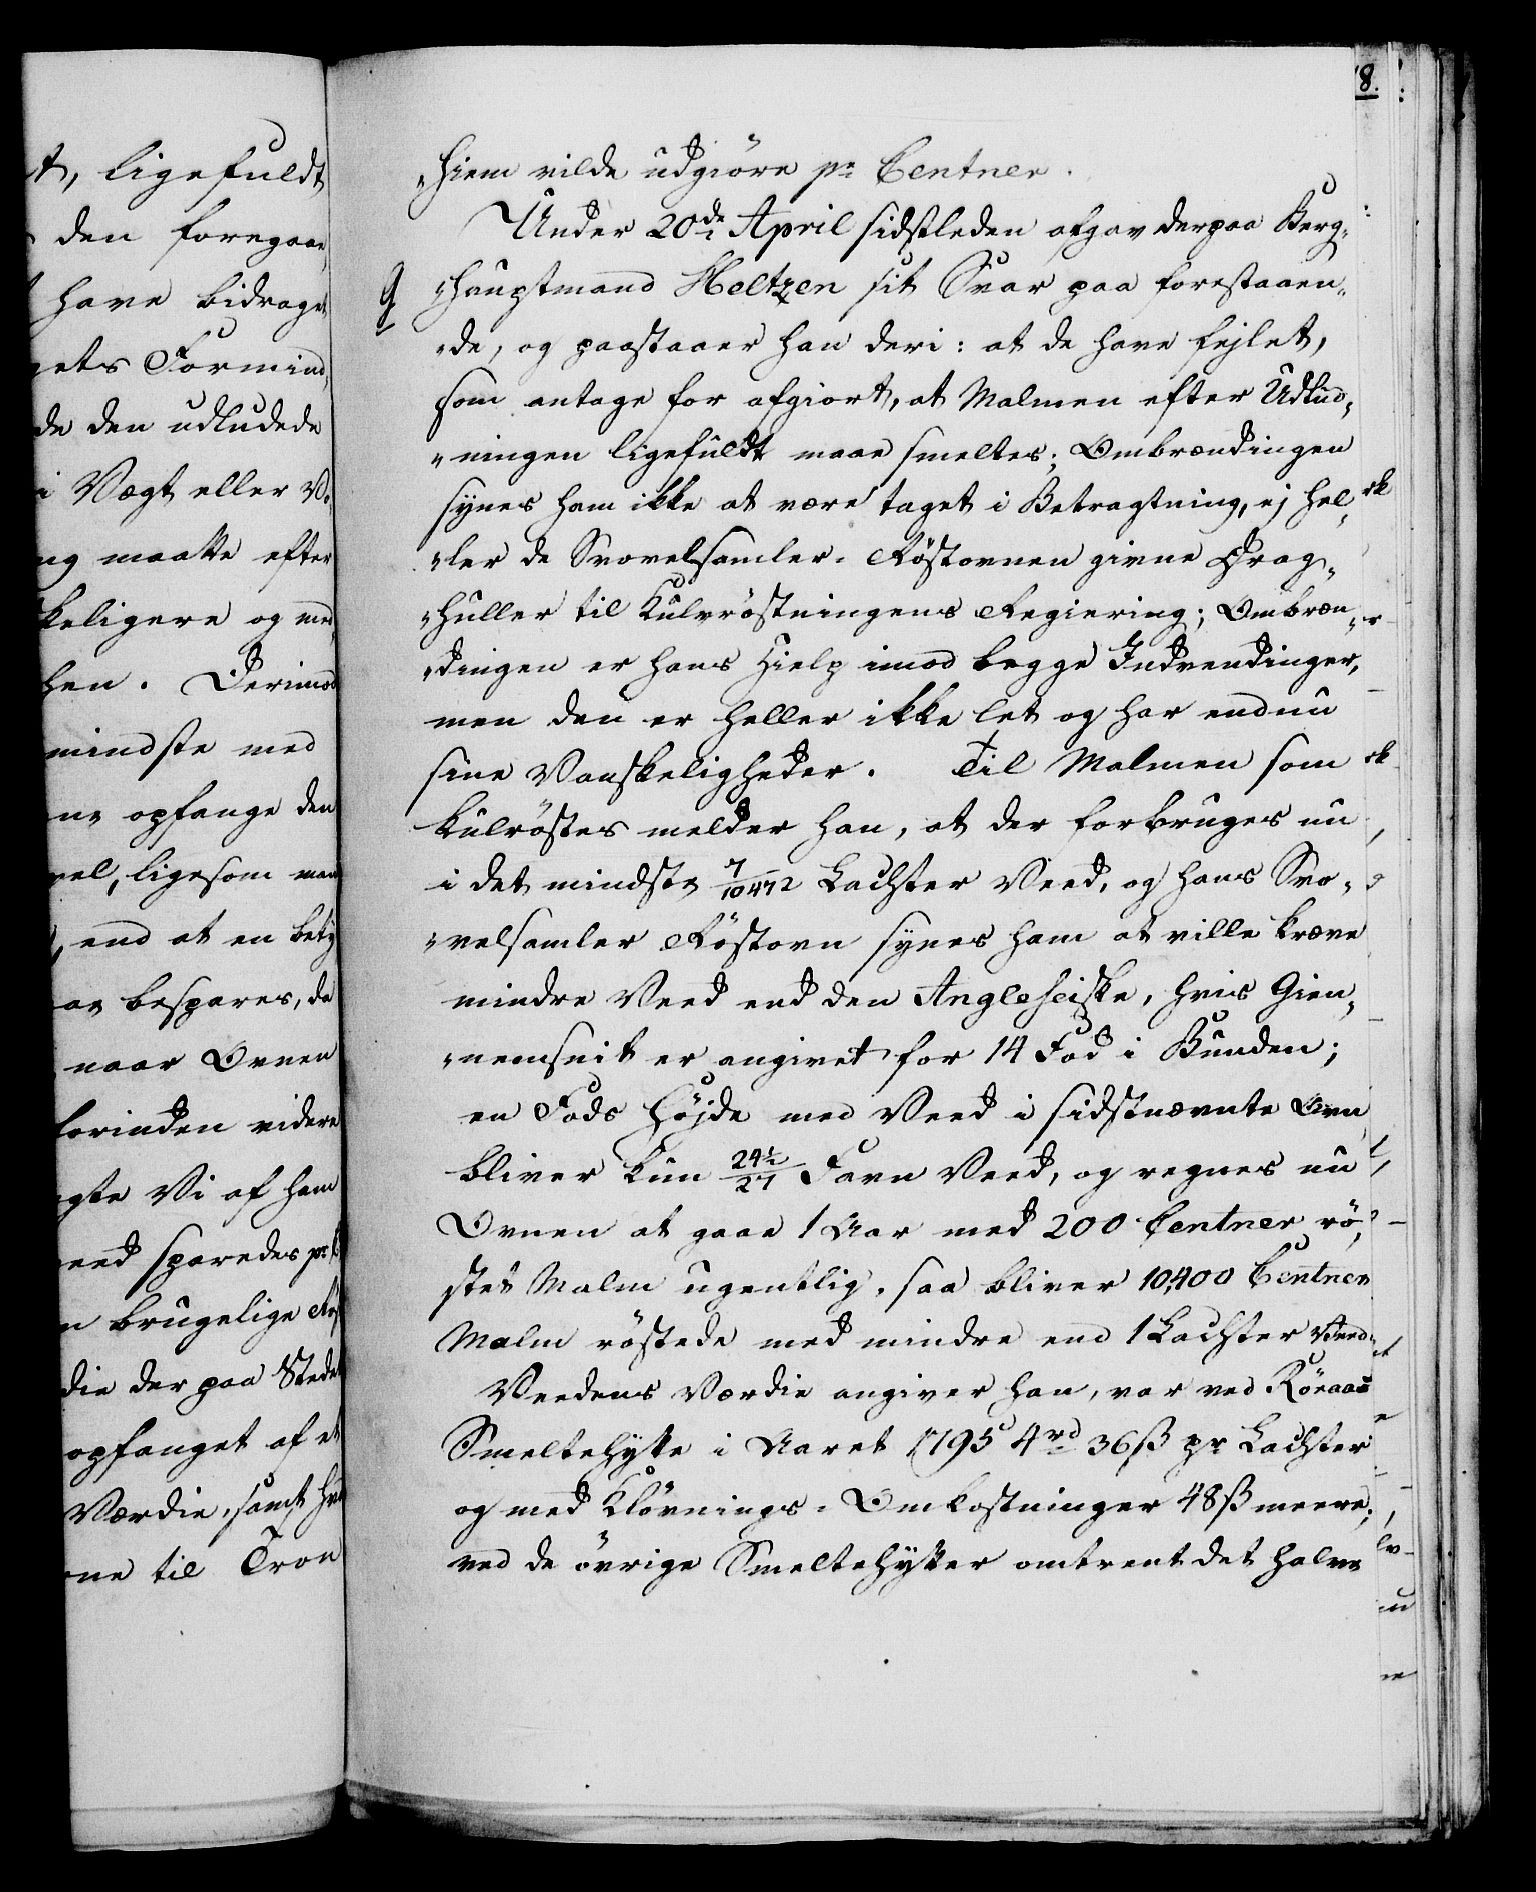 t, ligefuldt
den foregaae
have bidraget
gets Formind
de den udludede
i Vægt eller
ng maatte efter
keligere og med
hen. Derimod
mindste med
ne opfange den
vel, ligesom man
end at en bety
bespares, da
naar Ovnen
forinden videre
gte Vi af ham
eed sparedes pr
n brugelige
die der paa Stedet
opfanget af et
Værdie, samt
ne til Tron
8.
"hiem vilde udgiöre pr Centner.
Under 20de April sidstleden afgav derpaa Berg„
9 "hauptmand Heltzen sit Svar paa forestaaen„
"de, og paastaaer han deri: at de have fejlet,
som antage for afgiort, at Malmen efter Udlud„
"ningen ligefuldt maae smeltes; Ombrændingen
synes ham ikke at være taget i Betragtning, ej hel„
"ler de Svovelsamler-Röstovnen givne Drag„
"huller til Kulröstningens Regiering; Ombræn„
"dingen er hans Hielp imod begge Indvendinger,
men den er heller ikke let og har endnu
sine Vanskeligheder. Til Malmen som
kulröstes melder han, at der forbruges nu
i det mindste 7/10472 Lachter Veed, og hans Svo„
"velsamler Röstovn synes ham at ville kræve
mindre Veed end den Anglesciske, hvis Gien„
"nemsnit er angivet for 14 Fod i Bunden;
en Fods Höjde med Veed i sidstnævnte Ovn
bliver kun 24½/27 Favn Veed, og regnes nu
Ovnen at gaae 1 Aar med 200 Centner rö„
stet Malm ugentlig, saa bliver 10,400 Centner
Malm röstede med mindre end 1 Lachter Veed.
Veedens Værdie angiver han, var ved Röraas
Smeltehytte i Aaret 1795 4rd 36ß pr Lachter
og med Klövnings-Omkostninger 48ß meere;
ved de övrige Smeltehytter omtrent det halve